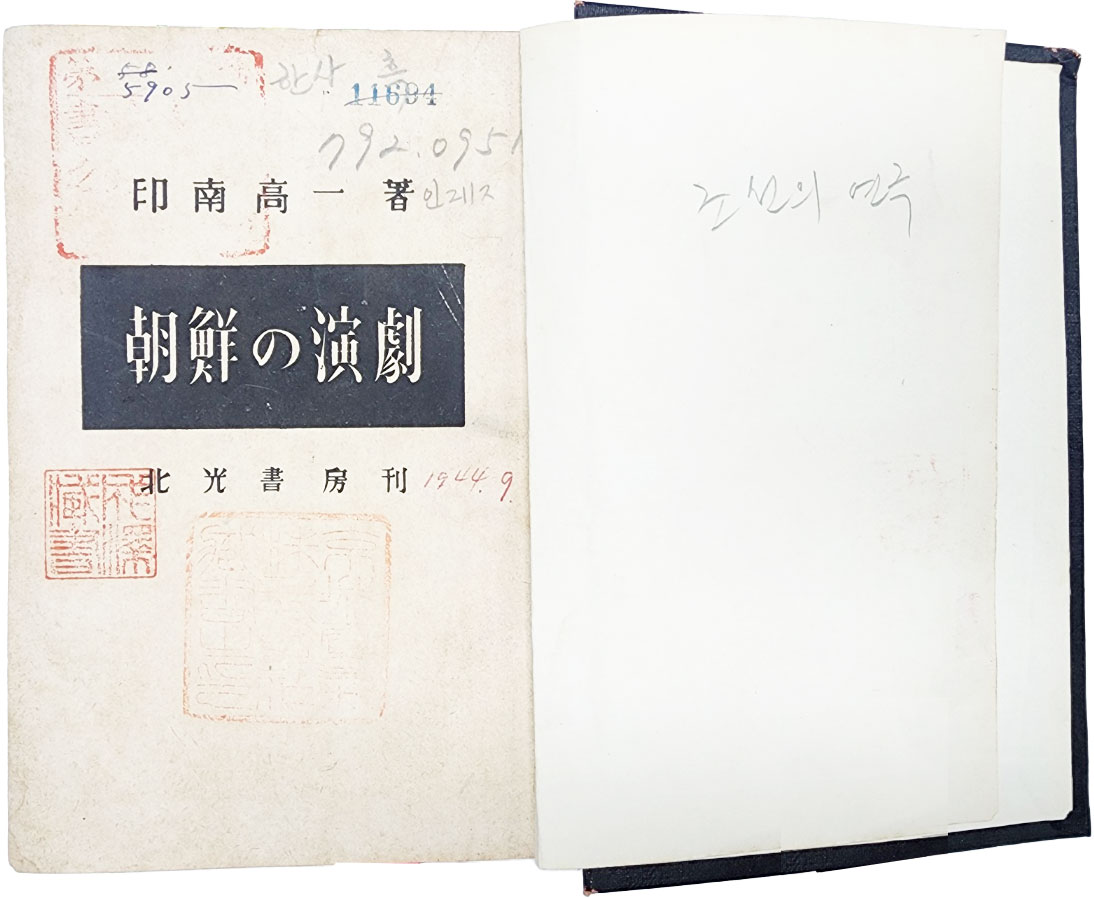 5905
11694
792.0951
印南高一著
朝鮮の演劇
北光書房刊 1944.9.
조선의 연극